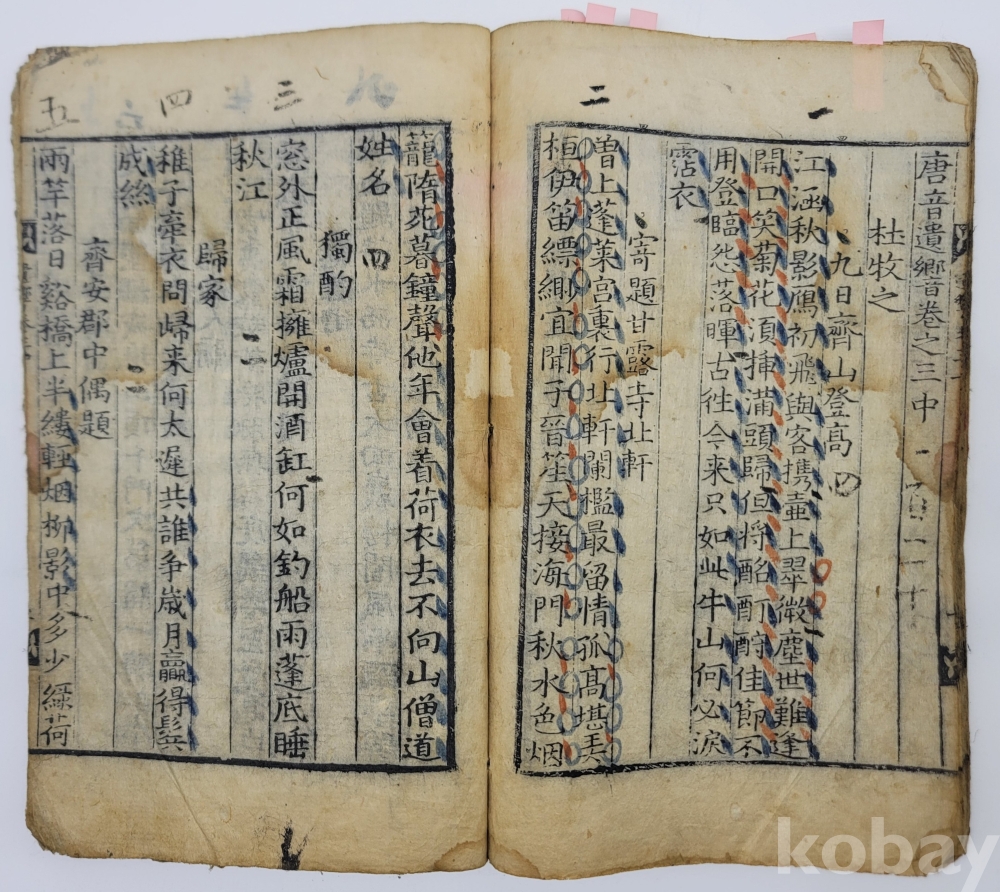 一
二
唐音遺響卷之三中
杜牧之
九日齊山登高 四
江涵秋影鴈初飛與客携壺上翠微塵世難逢
開口笑菊花湏揷滿頭歸但將酩酊酧佳節不
用登臨怨落暉古徃今来只如此牛山何必淚
霑衣
寄題甘露寺北軒
曽上蓬莱宫裏行北軒闌檻最留情孤髙堪弄
桓伊笛縹緲宜聞子晉笙天接海門秋水色烟
三
四
五
籠隋苑暮鐘聲他年會着荷衣去不向山僧道
姓名
四
獨酌
窓外正風霜擁爐開酒缸何如釣船雨蓬底睡
秋江
二
歸家
稚子牽衣問歸来何太遲共誰争歲月贏得鬂
成絲
二
齊安郡中偶題
兩竿落日谿橋上半縷輕烟柳影中多少綠荷
kobay